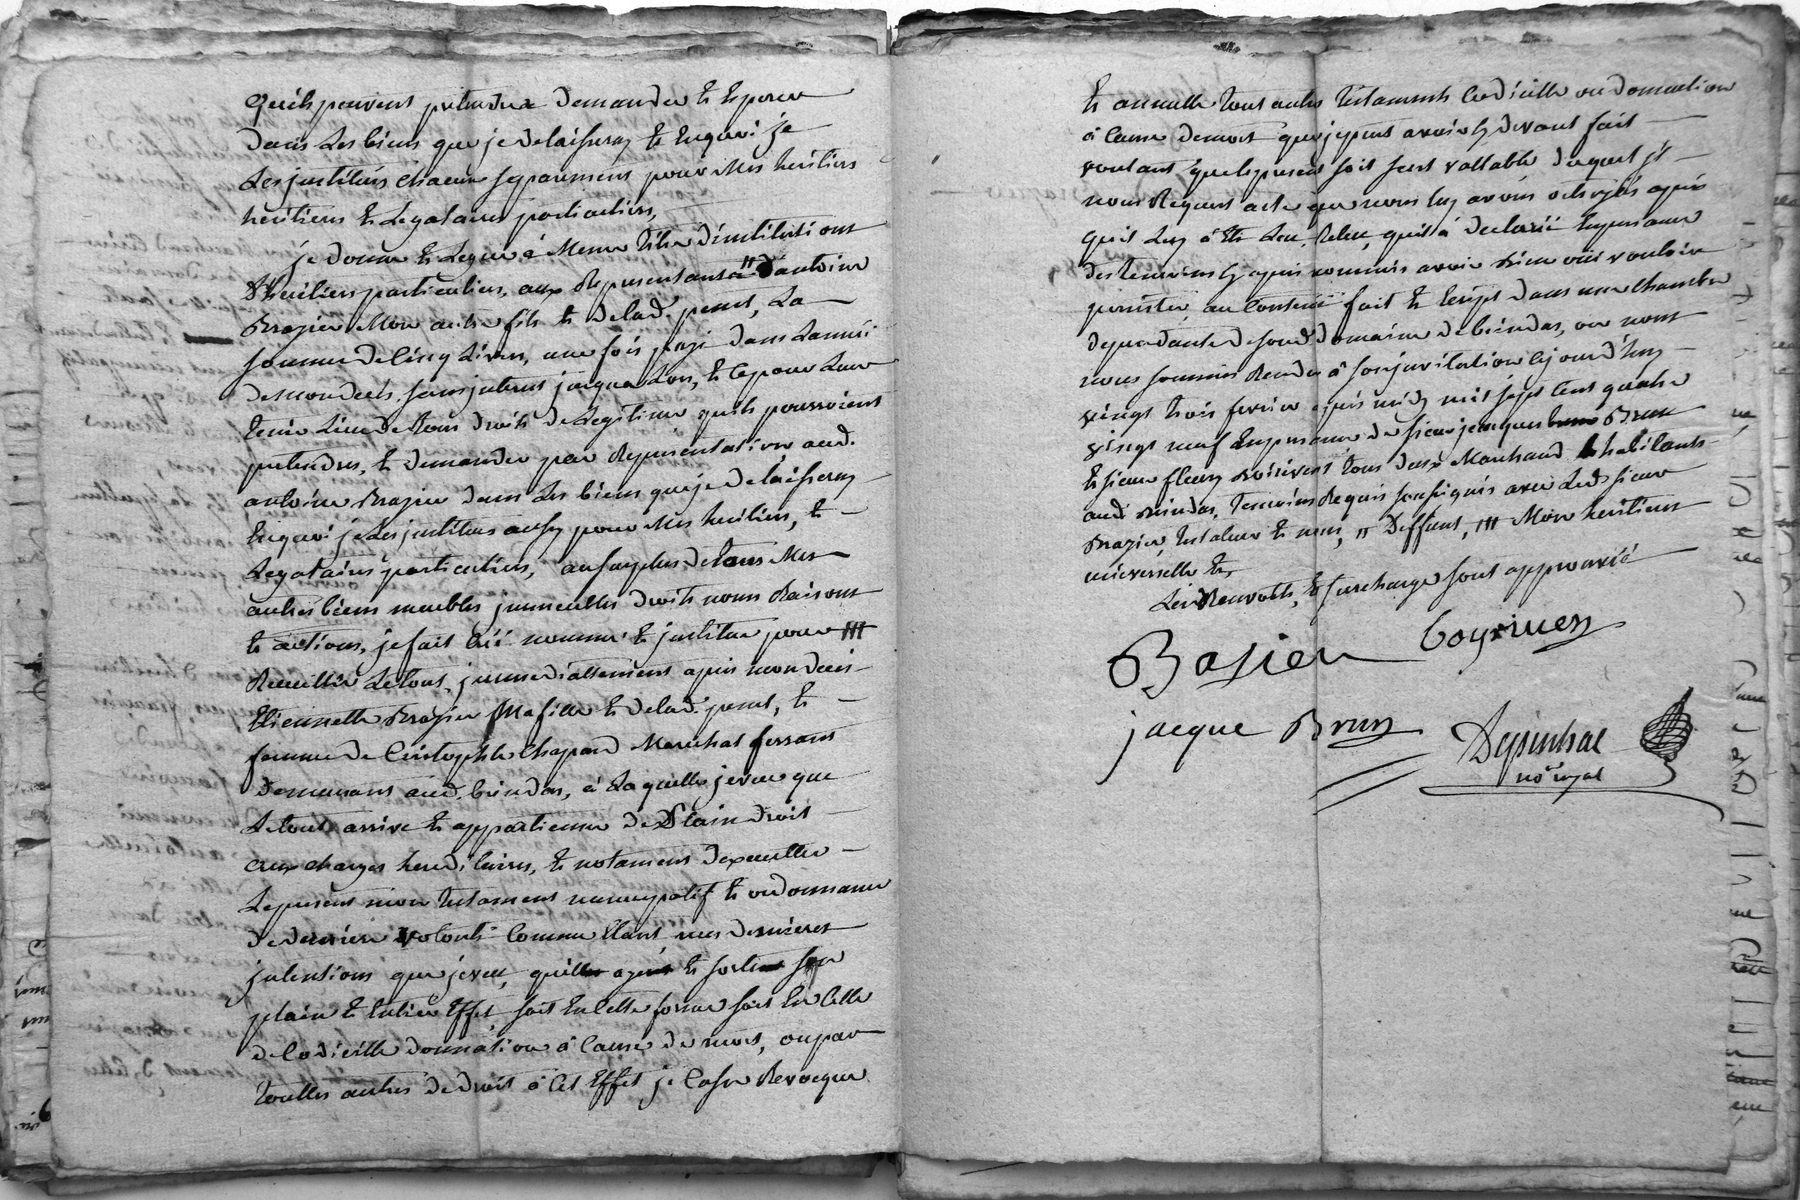 quils peuvent pretendre demander et esperer
dans les biens que je delaisseray et enquoi je
les institües chacun separement pour mes heritiers
heritiers et legataires particuliers,
je donne et legue à meme titre d'institutions
d'heritiers particuliers, aux representants " d'antoine
Brazier mon autre fils et de lad. penet, la
somme de cinq livres, une fois payé dans lannéé
de mon decés, sans interets jusqualors, et ce pour leur
tenir lieu de tous droits de legitime quils pourroient
pretendre, et demander par representation aud.
antoine Brazier dans les biens que je delaisseray
enquoi je les institues aussy pour mes heritiers, et
legataires particuliers, au surplus de tous mes
autres biens meubles immeubles droits noms raisons
et actions, je fait créé nomme et institue pour III
recueillir le tout, immediattement apres mon deces
Etiennette Brazier ma fille et de lad. penet, et
femme de Cristophle Chapard marechal ferrant
demeurant aud. brindas, à laquelle je veu que
le tout arrive et appartienne de plain droit
aux charges hereditaires, et notament dexecutter
le present mon testament nuncupatif et ordonnance
de derniere volonté comme étant mes dernieres
intentions que je veu, quil aye et sorte son
plain et entier effet, soit en cette forme soit en celle
de codicille donnation à cause de mort, ou par
touttes autres de droit à cet effet je casse revocque
et annulle tout autres testaments codicille ou donnation
à cause de mort que je peut avoir cy devant fait
voulant que le present soit seul vallable duquel il
nous requert acte que nous luy avons octroyés apres
qu'il luy à été leu, releu, quil à declaré en presence
des temoins cy apres nommés avoir bien oüi vouloir
persister, au contenu fait et leu dans une chambre
dependante de son domaine de brindas, ou nous
nous sommes rendu à son invitation ce jourd'huy
vingt trois fevrier apres midy mil sept cent quatre
vingt neuf en presence de sieur jacques Brun
et sieur fleury Boirivent tous deux marchand habitants
aud. Brindas, temoins requis soussignés avec led. sieur
Brazier, testateur et nous, " deffunt, III mon heritiere
universelle et
les renvois, et surcharge sont approuvéé
Basier
jacque Brun
Depinhac
no.re royal